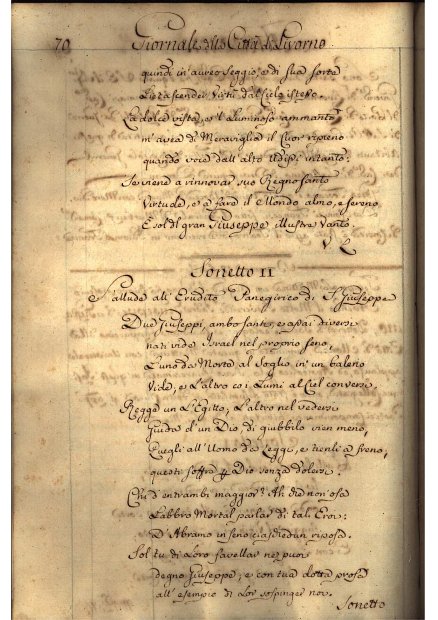 70 Giornale della Città di Livorno
quindi in aureo Seggio, e di sua sorte
scender Virtù dal Cielo istesso.
La dolce vista, e 'l Luminoso ammanto
m' avea di Meraviglia il Cuor ripieno
quando voce dall' alto udissi intanto:
Se viene a rinnovar suo Regno santo
Virtude, e a fare il Mondo almo, e sereno
È sol del gran Giuseppe illustre vanto.
V L
Sonetto II
S' allude all' Erudito Panegirico di S. Giuseppe
Due Giuseppi, ambo santi, e assai diversi
nati vide Israel nel proprio seno,
L'uno da Morte al Soglio in un baleno
Vide, e L'altro co i Lumi al Ciel conversi.
Regge un L'Egitto, L'altro nel vedersi
Guida d' un Dio, di giubbilo vien meno,
Quegli all' Uomo dà Leggi, e tienli a freno,
questi soffre per Dio senza dolersi.
Chi d' entrambi maggior? Ah che non osa
Labbro Mortal parlar di tali Eroi:
D' Abramo in seno ciaschedun riposa.
Sol tu di Loro favellar ne puoi
degno Giuseppe; e con tua dotta prosa
all' esempio di Lor sospinger noi.
Sonetto